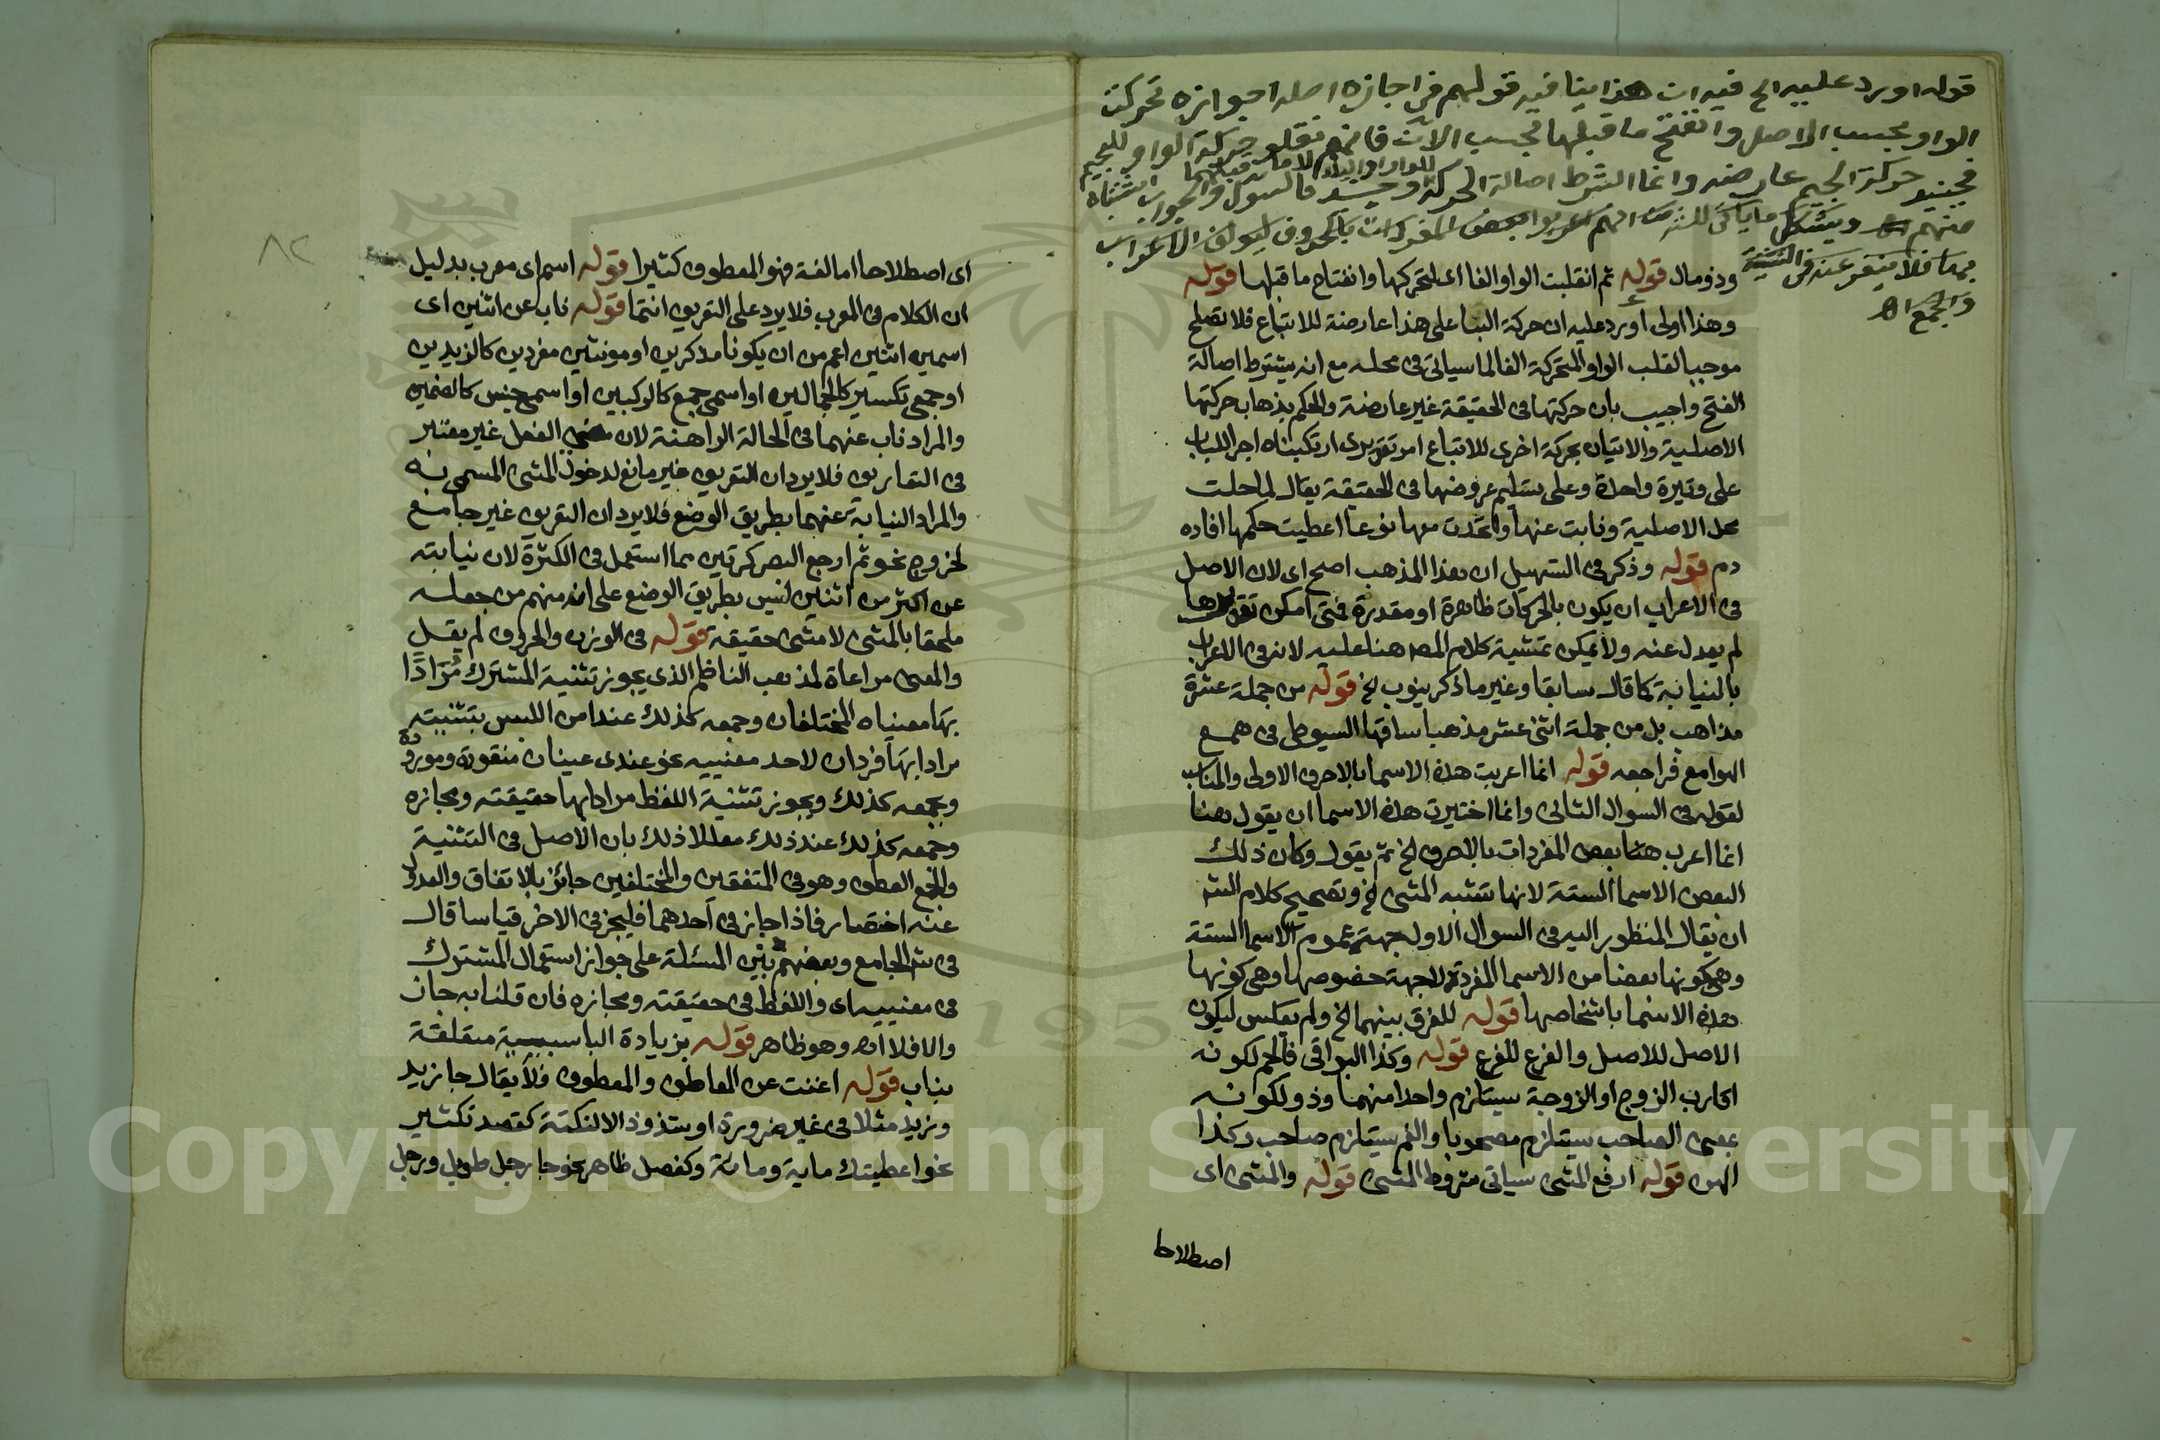 قوله اورد عليه الخ فيه ان هذا ينافيه قولهم في اجازه اصله اجوازه تحركت
الواو بحسب الاصل وانفتح ما قبلها بحسب الآن فانهم نقلو حركة الواو للجيم
فحينئذ حركة الجيم عارضه وانما الشرط اصالة الحركة
للواو او الياء لا ما قبلهما
فالسؤال والجواب اشتباه
منهم اهـ ويشكل ما ياتى للشرح انهم اعربوا بعض المفردات بالحروف ليولف الاعراب
بها فلا ينفر عنه في التثنية
والجمع اهـ
وذو مال قوله ثم انقلبت الواو الفا اى لتحركها وانفتاح ما قبلها قوله
وهذا اولى اورد عليه ان حركة البنا على هذا عارضة للاتباع فلا تصلح
موجبا لقلب الواو المتحركة الفا لما سياتى فى محله مع انه يشترط اصالة
الفتح واجيب بان حركتها فى الحقيقة غير عارضة والحكم بذهاب حركتها
الاصلية والاتيان بحركة اخرى للاتباع امر تقديرى ارتكبناه اجرا للباب
على وتيرة واحدة وعلى تسليم عروضها فى الحقيقة يقال لما حلت
محل الاصلية ونابت عنها واتحدت معها نوعا اعطيت حكمها افاده
دم قوله وذكر فى التسهيل ان هذا المذهب اصح اى لان الاصل
فى الاعراب ان يكون بالحركات ظاهرة او مقدرة فمتى امكن تقديرها
لم يعدل عنه ولا يمكن تمشية كلام المصـ هنا عليه لانه فى الاعراب
بالنيابة كما قال سابقا وغير ما ذكر ينوب الخ قوله من جملة عشرة
مذاهب بل من جملة اثنى عشر مذهبا ساقها السيوطى فى همع
الهوامع فراجعه قوله انما اعربت هذه الاسما بالاحرف الاولى والمناسب
لقوله فى السوال الثانى وانما اختيرت هذه الاسما ان يقول هنا
انما اعرب هنا بعض المفردات بالاحرف الخ ثم يقول وكان ذلك
البعض الاسما الستة لانها تشبه المثنى الخ وتصحيح كلام الشـ
ان يقال المنظور اليه فى السوال الاول جهة عموم الاسما الستة
وهى كونها بعضا من الاسما المفردة لا جهة خصوصها وهى كونها
هذه الاسما باشخاصها قوله للفرق بينهما الخ ولم يعكس ليكون
الاصل للاصل والفرع للفرع قوله وكذا البواقى فالحم لكونه
اقارب الزوج او الزوجة يستلزم واحدا منهما وذو لكونه
بمعنى الصاحب يستلزم مصحوبا والفم يستلزم صاحب وكذا
الهن قوله ارفع المثنى سياتى شروط المثنى قوله والمثنى اى
اصطلاحا
٨٢
اى اصطلاحا اما لغة فهو المعطوف كثيرا قوله اسم اى معرب بدليل
ان الكلام فى المعرب فلا يرد على التعريف انتما قوله ناب عن اثنين اى
اسمين اثنين اعم من ان يكونا مذكرين او مونثين مفردين كالزيدين
او جمعى تكسير كالجمالين او اسمى جمع كالركبين او اسمى جنس كالغنمين
والمراد ناب عنهما فى الحالة الراهنة لان مضى الفعل غير معتبر
فى التعاريف فلا يرد ان التعريف غير مانع لدخول المثنى المسمى به
والمراد النيابة عنهما بطريق الوضع فلا يرد ان التعريف غير جامع
لخروج نحو ثم ارجع البصر كرتين مما استعمل فى الكثرة لان نيابته
عن اكثر من اثنين ليس بطريق الوضع على انه منهم من جعله
ملحقا بالمثنى لا مثنى حقيقة قوله فى الوزن والحروف لم يقل
والمعنى مراعاة لمذهب الناظم الذى يجوز تثنية المشترك مُرَادًا
بها معنياه المختلفان وجمعه كذلك عند امن اللبس بتثنيته
مرادا بها فردان لاحد معنييه نحو عندى عينان منقودة ومورودة
وجمعه كذلك ويجوز تثنية اللفظ مرادا بها حقيقته ومجازه
وجمعه كذلك عند ذلك معللا ذلك بان الاصل فى التثنية
والجمع العطف وهو فى المتفقين والمختلفين جائز بالاتفاق والعدول
عنه اختصار فاذا جاز فى احدهما فليجز فى الاخر قياسا قال
فى شـ الجامع وبعضهم بنى المسئلة على جواز استعمال المشترك
فى معنييه اى واللفظ فى حقيقته ومجازه فان قلنا به جاز
والا فلا اهـ وهو ظاهر قوله بزيادة البا سببية متعلقة
بناب قوله اغنت عن العاطف والمعطوف فلا يقال جا زيد
وزيد مثلا فى غير ضرورة او شذوذ الا لنكتة كقصد تكثير
نحو اعطيتك ماية وماية وكفصل ظاهر نحو جا رجل طويل ورجل
Copyright © King Saud University
195